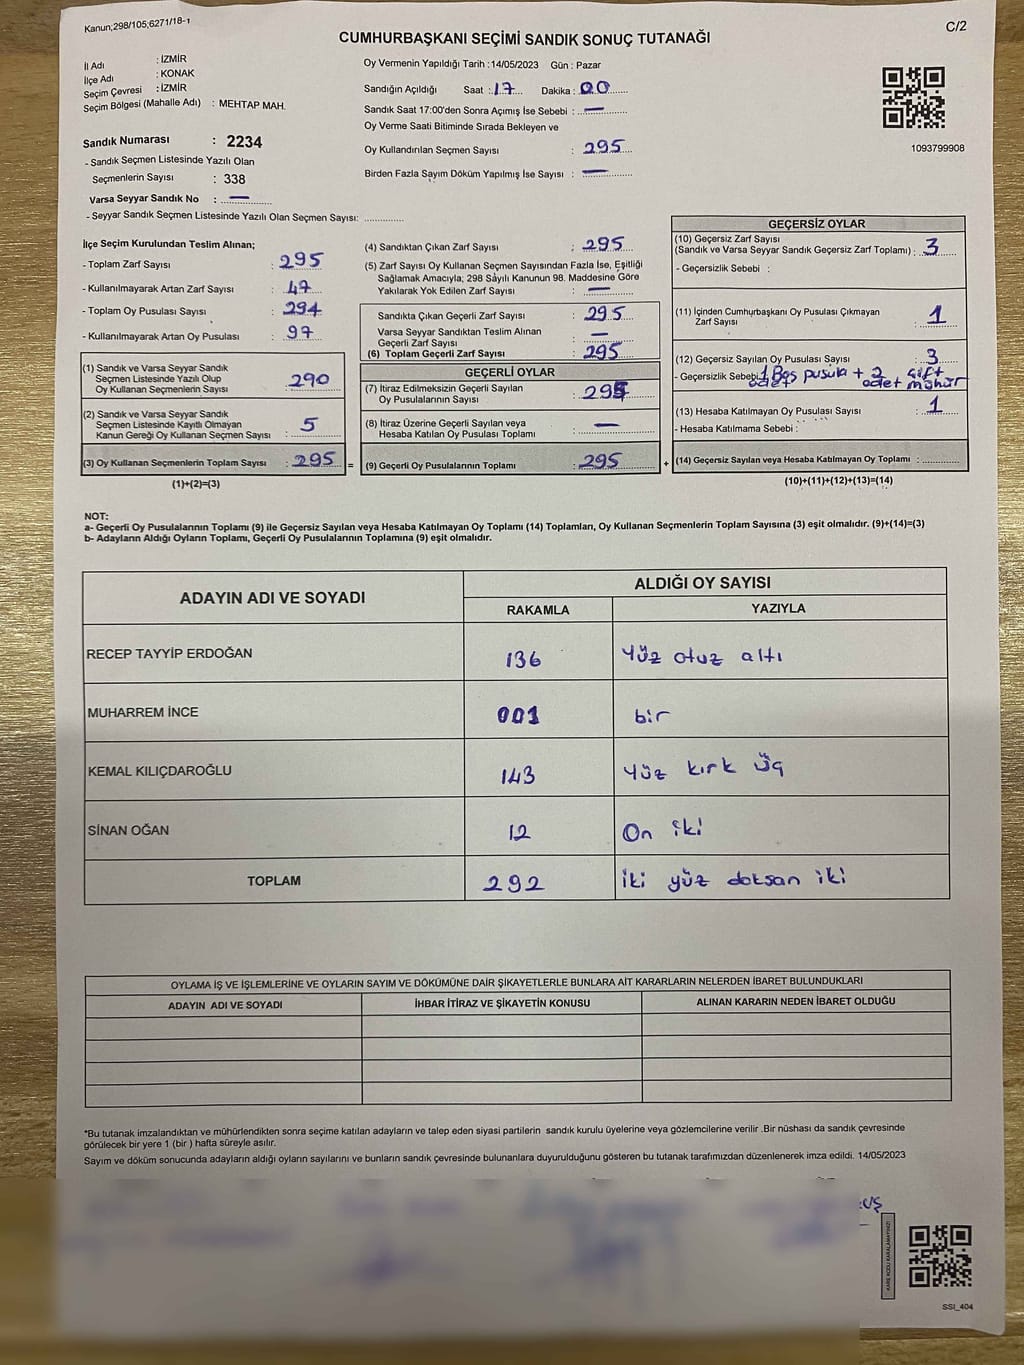 Kanun;298/105;6271/18-1
C/2
CUMHURBAŞKANI SEÇİMİ SANDIK SONUÇ TUTANAĞI
İl Adı : İZMİR
İlçe Adı : KONAK
Seçim Çevresi : İZMİR
Seçim Bölgesi (Mahalle Adı) : MEHTAP MAH.
Sandık Numarası : 2234
- Sandık Seçmen Listesinde Yazılı Olan
Seçmenlerin Sayısı : 338
Varsa Seyyar Sandık No : —
- Seyyar Sandık Seçmen Listesinde Yazılı Olan Seçmen Sayısı: ..............
Oy Vermenin Yapıldığı Tarih :14/05/2023 Gün : Pazar
Sandığın Açıldığı Saat : 17 Dakika : 00
Sandık Saat 17:00'den Sonra Açımış İse Sebebi : —
Oy Verme Saati Bitiminde Sırada Bekleyen ve
Oy Kullandırılan Seçmen Sayısı : 295
Birden Fazla Sayım Döküm Yapılmış İse Sayısı : —
1093799908
İlçe Seçim Kurulundan Teslim Alınan;
- Toplam Zarf Sayısı : 295
- Kullanılmayarak Artan Zarf Sayısı : 47
- Toplam Oy Pusulası Sayısı : 294
- Kullanılmayarak Artan Oy Pusulası : 97
(1) Sandık ve Varsa Seyyar Sandık
Seçmen Listesinde Yazılı Olup
Oy Kullanan Seçmenlerin Sayısı : 290
(2) Sandık ve Varsa Seyyar Sandık
Seçmen Listesinde Kayıtlı Olmayan
Kanun Gereği Oy Kullanan Seçmen Sayısı : 5
(3) Oy Kullanan Seçmenlerin Toplam Sayısı : 295 =
(1)+(2)=(3)
(4) Sandıktan Çıkan Zarf Sayısı : 295
(5) Zarf Sayısı Oy Kullanan Seçmen Sayısından Fazla İse, Eşitliği
Sağlamak Amacıyla; 298 Sayılı Kanunun 98. Maddesine Göre
Yakılarak Yok Edilen Zarf Sayısı : —
Sandıkta Çıkan Geçerli Zarf Sayısı : 295
Varsa Seyyar Sandıktan Teslim Alınan
Geçerli Zarf Sayısı : —
(6) Toplam Geçerli Zarf Sayısı : 295
GEÇERLİ OYLAR
(7) İtiraz Edilmeksizin Geçerli Sayılan
Oy Pusulalarının Sayısı : 295
(8) İtiraz Üzerine Geçerli Sayılan veya
Hesaba Katılan Oy Pusulası Toplamı : —
(9) Geçerli Oy Pusulalarının Toplamı : 295 +
GEÇERSİZ OYLAR
(10) Geçersiz Zarf Sayısı
(Sandık ve Varsa Seyyar Sandık Geçersiz Zarf Toplamı) : 3
- Geçersizlik Sebebi :
(11) İçinden Cumhurbaşkanı Oy Pusulası Çıkmayan
Zarf Sayısı : 1
(12) Geçersiz Sayılan Oy Pusulası Sayısı : 3
- Geçersizlik Sebebi: 1 adet Boş pusula + 2 adet çift mühür
(13) Hesaba Katılmayan Oy Pusulası Sayısı : 1
- Hesaba Katılmama Sebebi :
(14) Geçersiz Sayılan veya Hesaba Katılmayan Oy Toplamı : ..............
(10)+(11)+(12)+(13)=(14)
NOT:
a- Geçerli Oy Pusulalarının Toplamı (9) ile Geçersiz Sayılan veya Hesaba Katılmayan Oy Toplamı (14) Toplamları, Oy Kullanan Seçmenlerin Toplam Sayısına (3) eşit olmalıdır. (9)+(14)=(3)
b- Adayların Aldığı Oyların Toplamı, Geçerli Oy Pusulalarının Toplamına (9) eşit olmalıdır.
ADAYIN ADI VE SOYADI
ALDIĞI OY SAYISI
RAKAMLA YAZIYLA
RECEP TAYYİP ERDOĞAN 136 Yüz otuz altı
MUHARREM İNCE 001 bir
KEMAL KILIÇDAROĞLU 143 Yüz kırk üç
SİNAN OĞAN 12 On iki
TOPLAM 292 iki yüz doksan iki
OYLAMA İŞ VE İŞLEMLERİNE VE OYLARIN SAYIM VE DÖKÜMÜNE DAİR ŞİKAYETLERLE BUNLARA AİT KARARLARIN NELERDEN İBARET BULUNDUKLARI
ADAYIN ADI VE SOYADI İHBAR İTİRAZ VE ŞİKAYETİN KONUSU ALINAN KARARIN NEDEN İBARET OLDUĞU
*Bu tutanak imzalandıktan ve mühürlendikten sonra seçime katılan adayların ve talep eden siyasi partilerin sandık kurulu üyelerine veya gözlemcilerine verilir .Bir nüshası da sandık çevresinde
görülecek bir yere 1 (bir ) hafta süreyle asılır.
Sayım ve döküm sonucunda adayların aldığı oyların sayılarını ve bunların sandık çevresinde bulunanlara duyurulduğunu gösteren bu tutanak tarafımızdan düzenlenerek imza edildi. 14/05/2023
KARE KODU KARALAMAYINIZ!
SSI_404